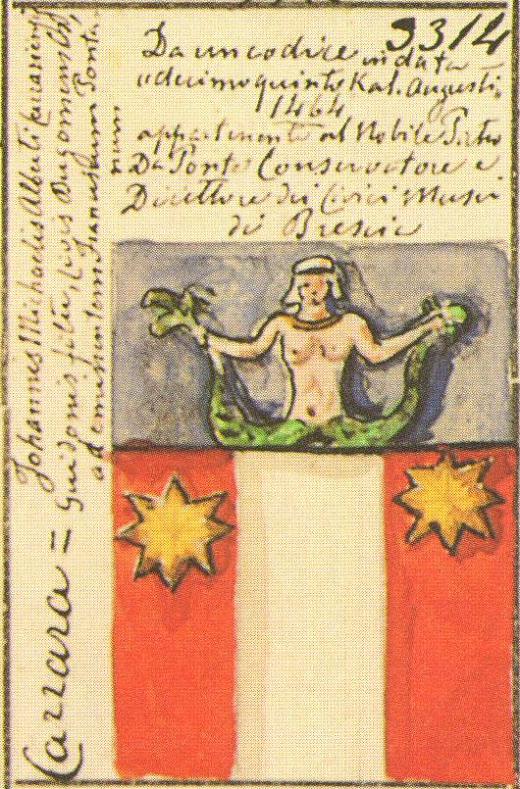 3314
Da un codice in data
"decimoquinto Kal. Augusti,
1464
appartenente al Nobile Pietro
Da Ponte Conservatore e
Direttore dei Civici Musei
di Brescia
Carrara = Johannes Michaelis Alberti
Guidonis filius, Civis Bergomensis,
ad
num